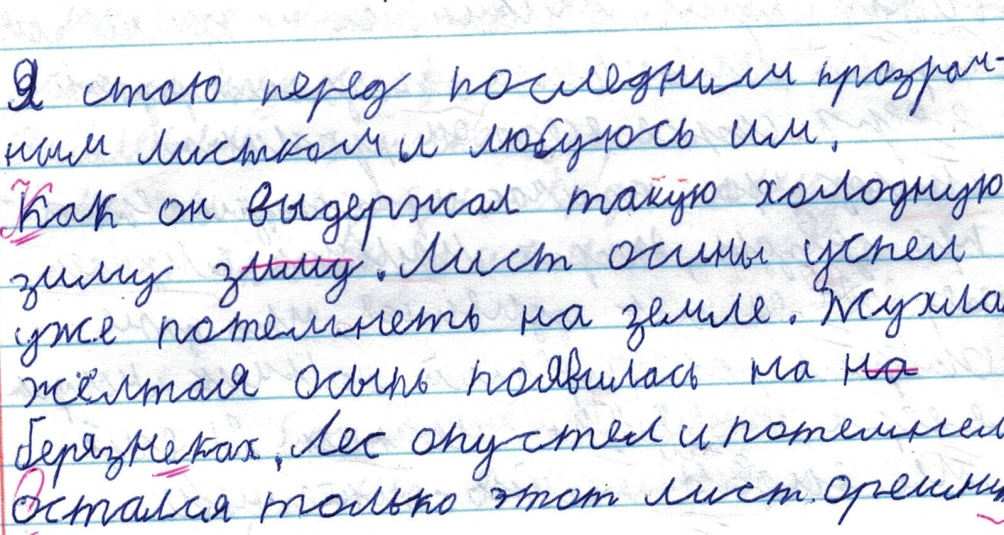 Я стою перед последним прозрач-
ным листком и любуюсь им.
Как он выдержал такую холодную
зиму зиму. Лист осины успел
уже потемнеть на земле. Жухла
жёлтая осыпь появилась на на
берязнеках. Лес опустел и потемнел
Остался только этот лист. орешни